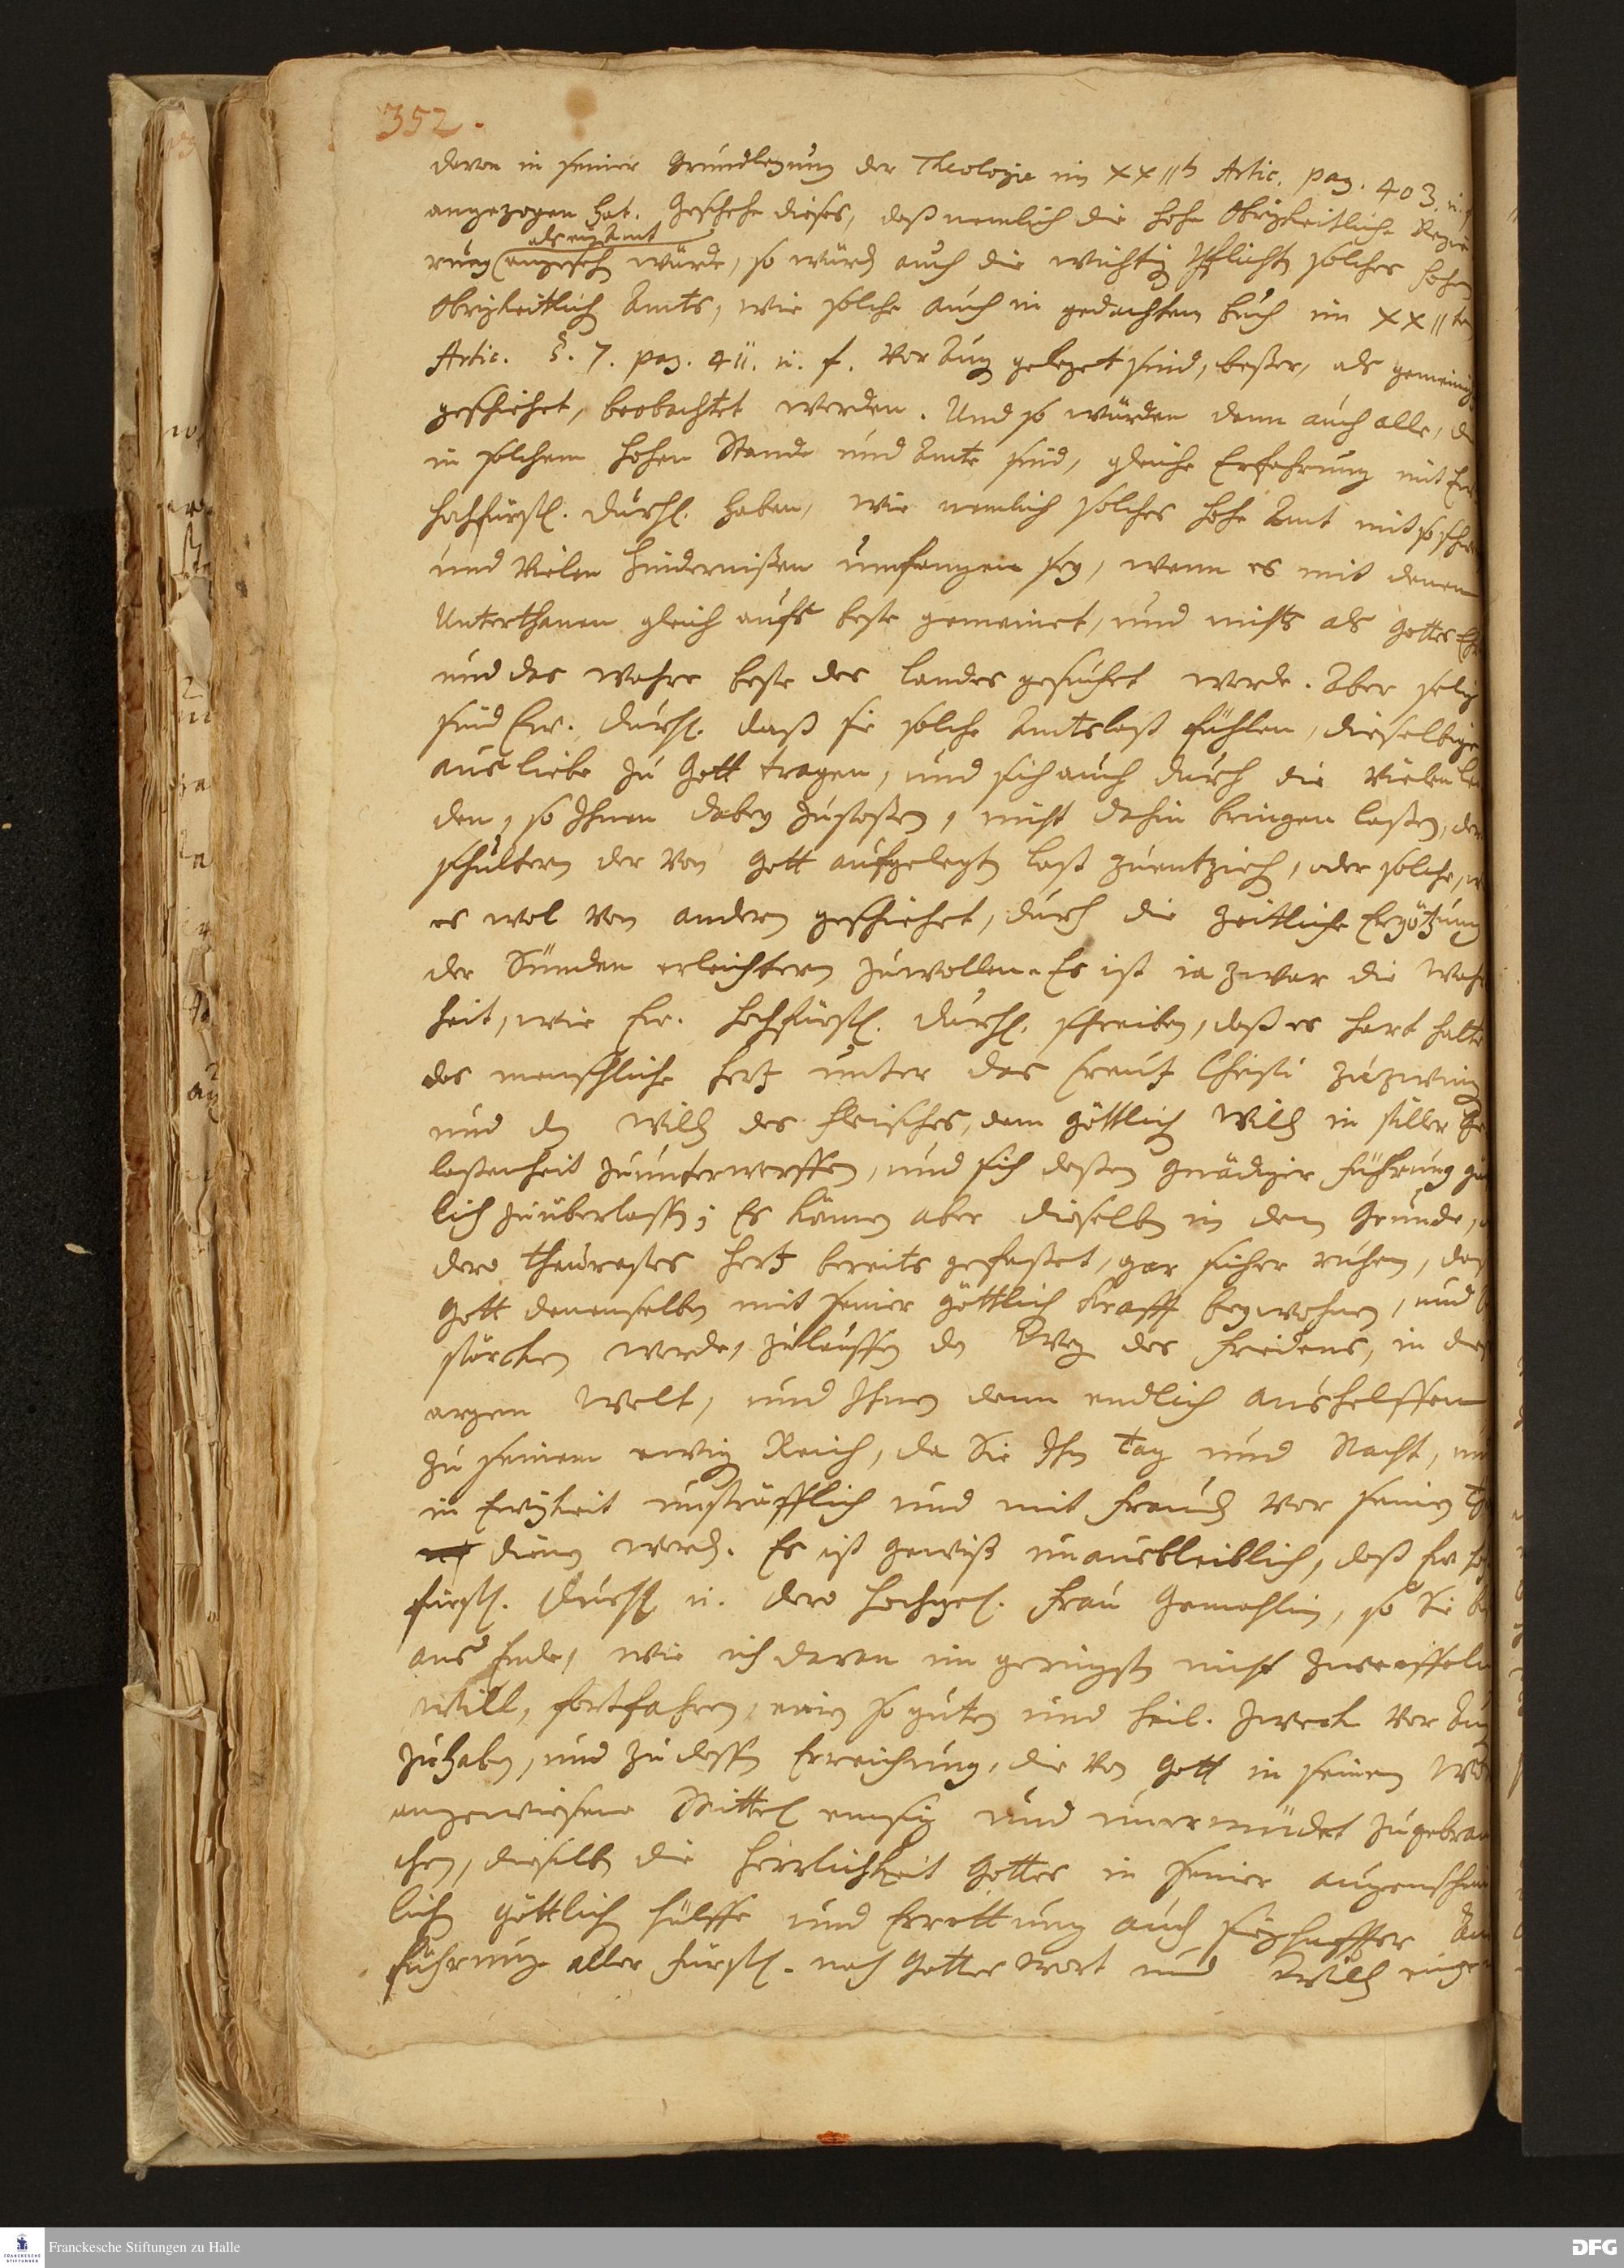 352.
davon in seiner Grundlegung der Theologie im XXIIt Artic. pag. 403. u. f
angezogen hat. Geschehe dieses, daß nemlich die hohe Obrigkeitliche Regie
als ein Amt
rung angeseh würde, so würd auch die wichtig Pflicht solches hohen
Obrigkeitlich Amts, wie solche auch in gedachtem Buch im XXIIten
Artic. §. 7. pag. 411. u. f. vor Aug geleget sind, beßer, als gemeinig
geschiehet, beobachtet werden. Und so würden denn auch alle, die
in solchem hohen Stande und Amte sind, gleiche Erfahrung mit Ew
hochfürstl. Durchl. haben, wie nemlich solches hohe Amt mit so
und vielen Hindernißen umfangen sey, wenn es mit denen
Unterthanen gleich aufs beste gemeinet, und nichts als Gottes Ehr
und das wahre beste des Landes gesuchet werde. Aber selig
sind Ew. Durchl. daß sie solche Amtslast fühlen, dieselbige
aus Liebe zu Gott tragen, und sich auch durch die vielen Lei
den, so Ihnen dabey zustoßen, nicht dahin bringen laßen, der
schultern der von Gott aufgelegten last zuentzieh, oder solche, w
es wol von andern geschiehet, durch die zeitliche Ergötzung
der Sünden erleichtern zuwollen. Es ist ia zwar die Wahr
heit, wie Ew. hochfürstl. Durchl. schreiben, daß es hart halte
das menschliche Hertz unter das Creutz Christi zuzwing
und den Willen des Fleisches, dem göttlich Willen in stiller Ge
laßenheit zuunterwerffen, und sich deßen gnädiger Führung gä
lich zuüberlassen; Es können aber dieselben in dem Grunde,
dero theurestes Hertz bereits gefaßet, gar sicher ruhen, daß
Gott denenselben mit seiner göttlich Krafft beywohnen, und
stärcken werde, zulauffen den Weg des Friedens, in der
argen Welt, und Ihnen denn endlich aushelffen
zu seinem ewig Reich, da Sie Ihm Tag und Nacht, un
in Ewigkeit unsträfflich und mit Freuden vor seinem Th
dienen werden. Es ist gewiß unausbleiblich, daß Ew hoch
fürstl. Durchl u. dero hochgel. Frau Gemahlin, so Sie bis
ans Ende, wie ich daran im geringsten nicht zweiffeln
will, fortfahren, einen so guten und heil. Zweck vor Aug
zuhaben, und zu dessen Erreichung, die von Gott in seinem Wor
angewiesene Mittel emsig und unermüdet zugebrau
chen, dieselben die Herrlichkeit Gottes in seiner augenschein
lich göttlich Hülffe und Errettung auch
führung aller Fürstl. nach Gottes Wort und Willen
Franckesche Stiftungen zu Halle
DFG